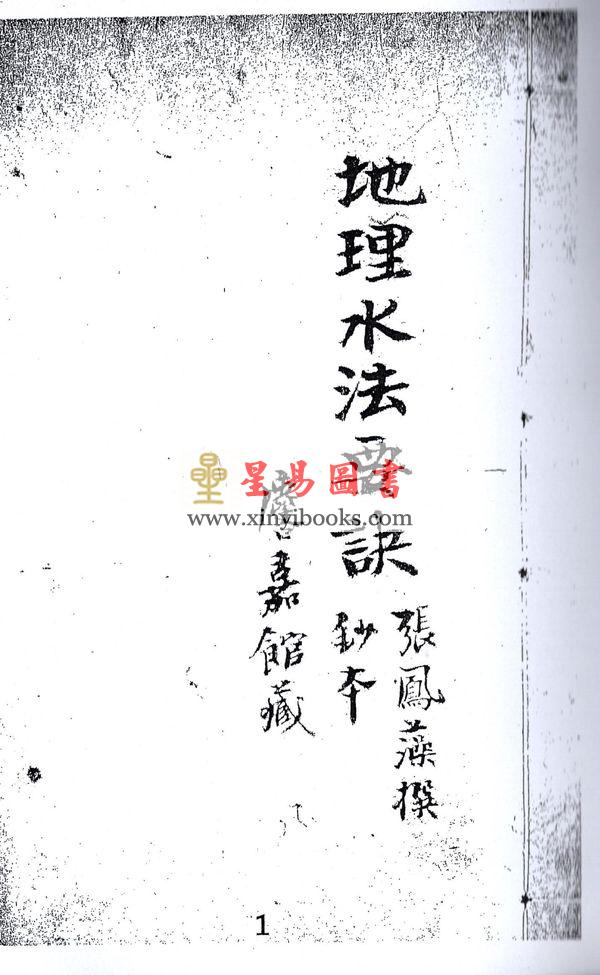 地理水法要訣
張鳳藻撰
鈔本
麐嘉館藏
星易圖書
www.xinyibooks.com
1